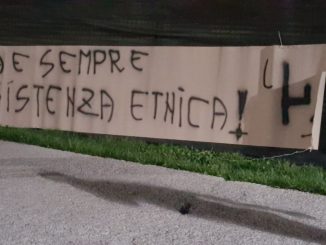 E SEMPRE
ISTENZA ETNICA!